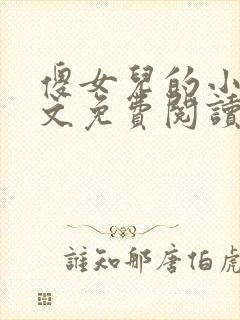 傻女兒的小
文免費閱讀
誰知那唐伯虎